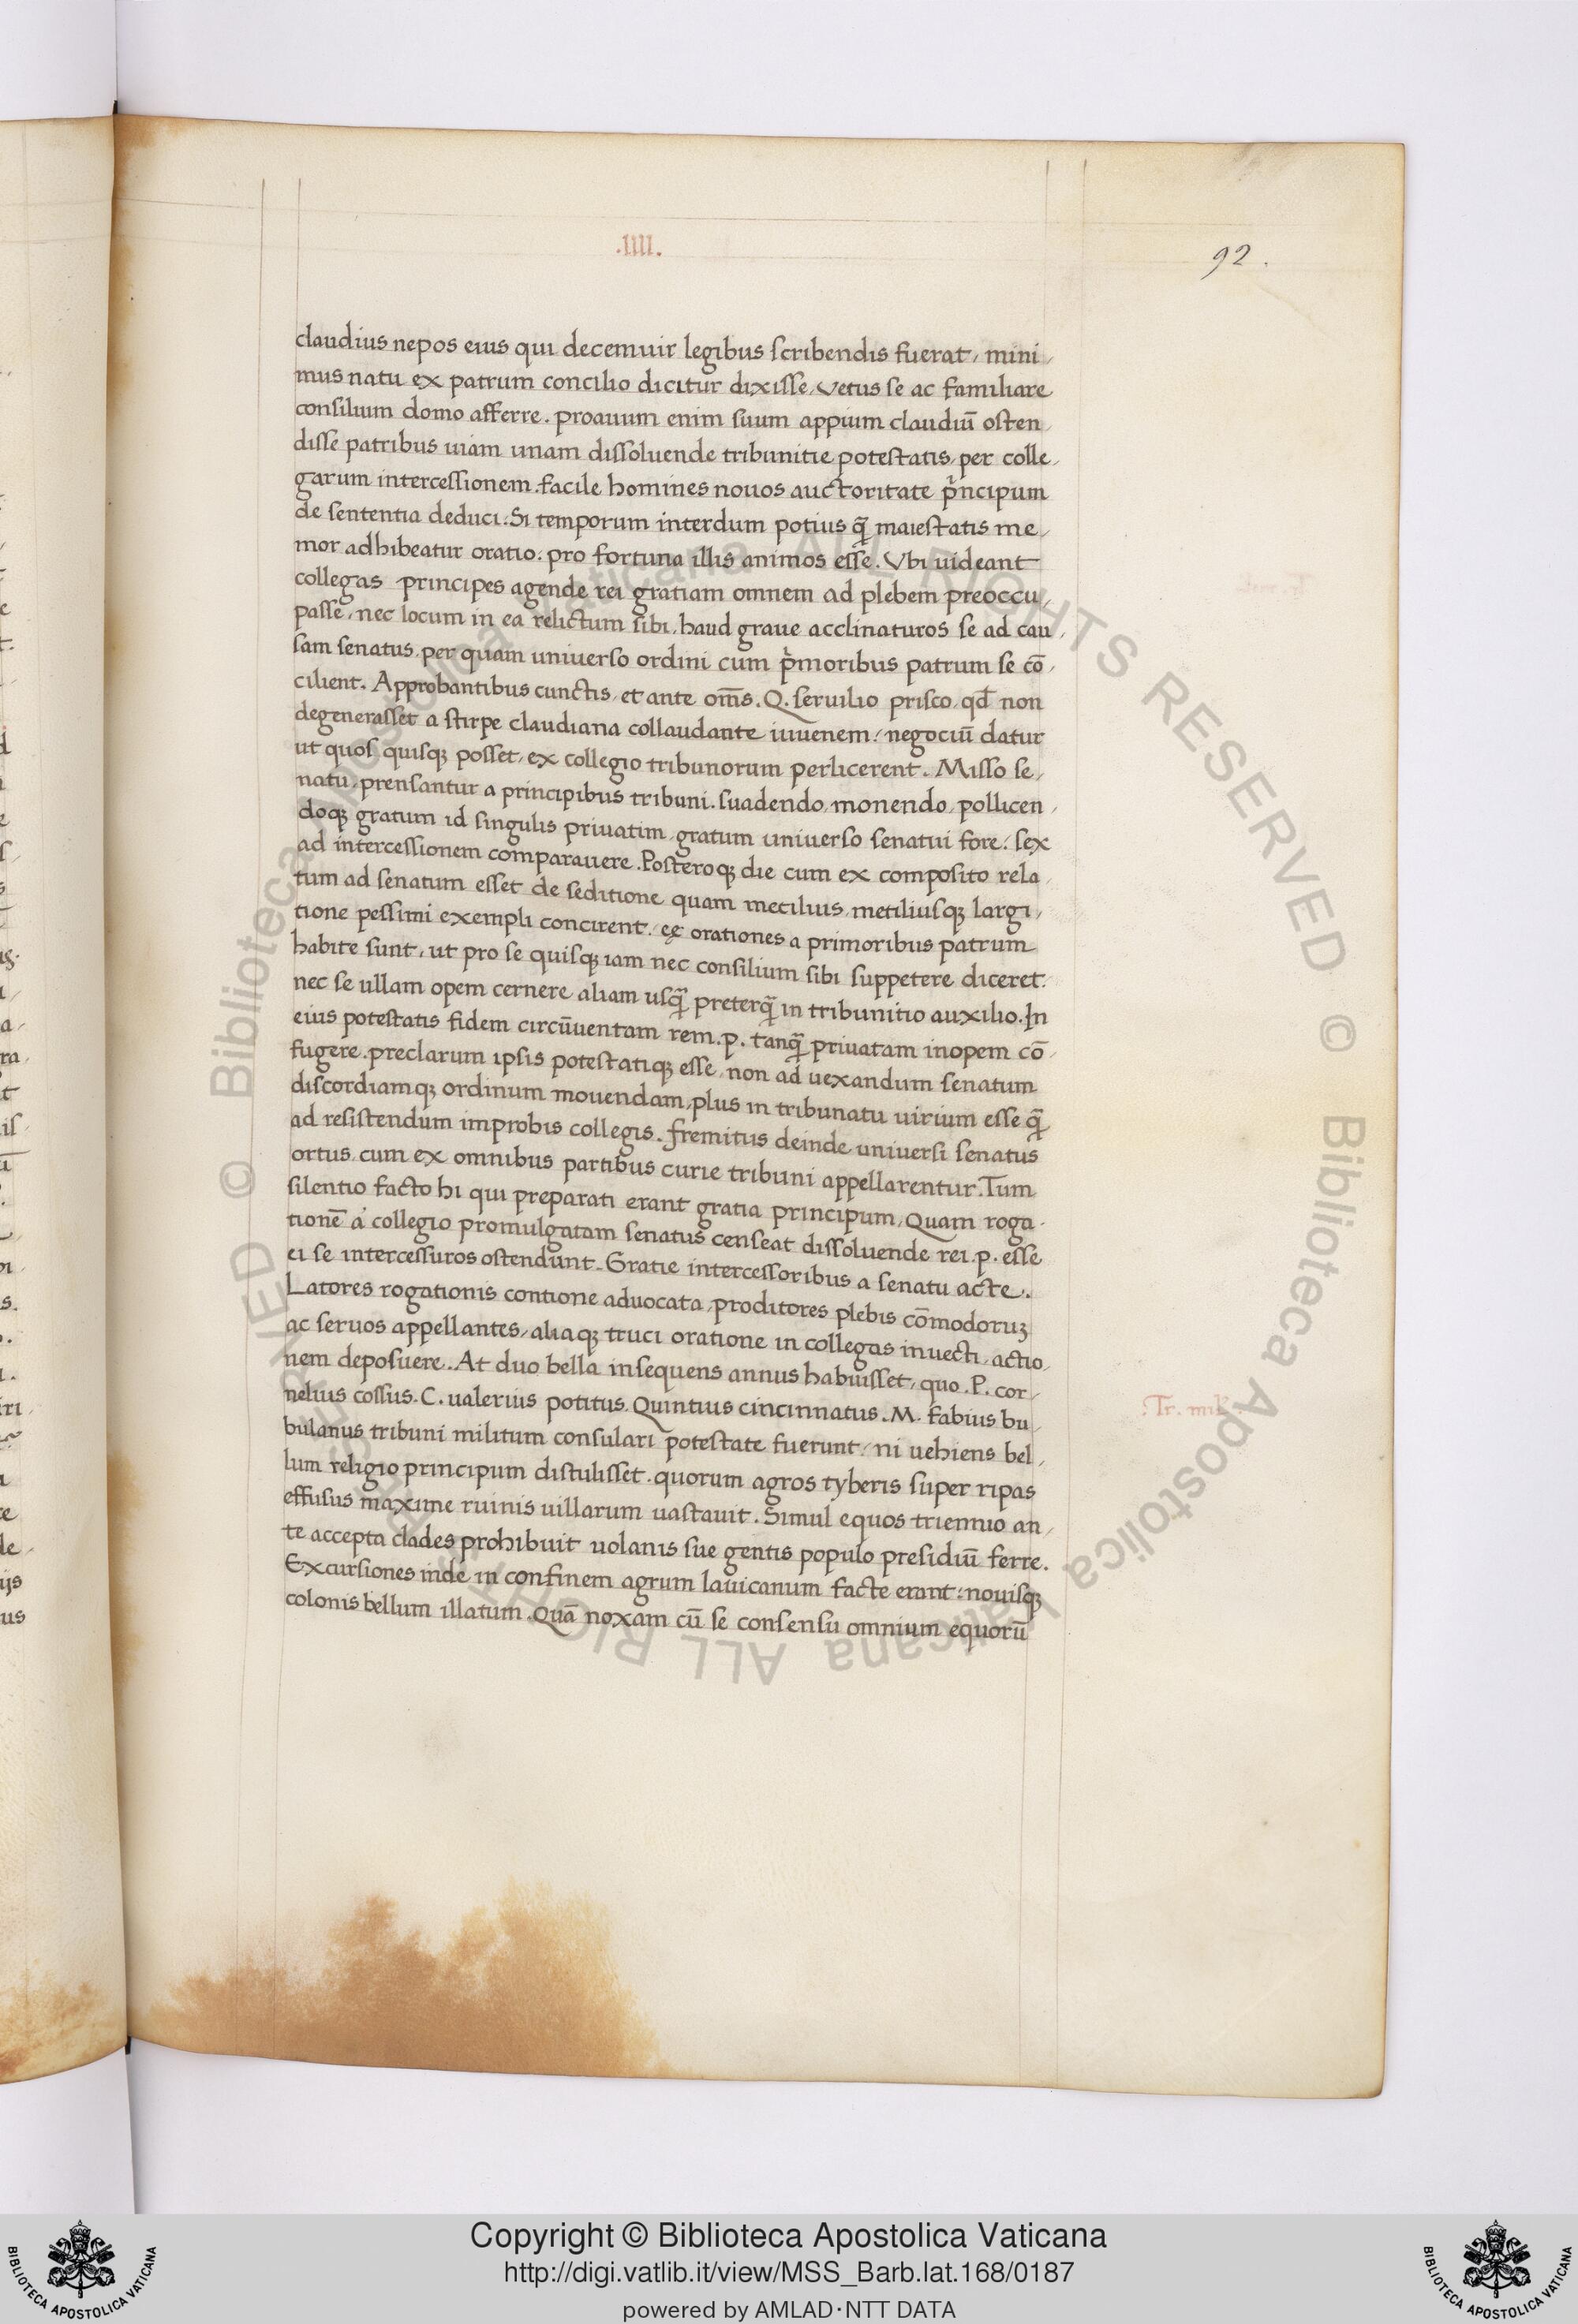 .IIII.
92.
claudius nepos eius qui decemuir legibus scribendis fuerat, mini-
mus natu ex patrum concilio dicitur dixisse, vetus se ac familiare
consilium domo afferre. proauum enim suum appium claudiū osten-
disse patribus uiam unam dissoluende tribunitie potestatis, per colle-
garum intercessionem. facile homines nouos auctoritate p̄ncipum
de sententia deduci: Si temporum interdum potius q̄ maiestatis me-
mor adhibeatur oratio: pro fortuna illis animos esse. Vbi uideant
collegas principes agende rei gratiam omnem ad plebem preoccu-
passe, nec locum in ea relictum sibi, haud graue acclinaturos se ad cau-
sam senatus, per quam universo ordini cum p̄moribus patrum se cō-
cilient. Approbantibus cunctis, et ante om̄s. Q. seruilio prisco, qđ non
degenerasset a stirpe claudiana collaudante iuuenem: negociū datur
ut quos quisq; posset, ex collegio tribunorum perlicerent. Misso se-
natu, prensantur a principibus tribuni. suadendo, monendo, pollicen-
doq; gratum id singulis priuatim, gratum universo senatui fore: sex
ad intercessionem comparauere. Posteroq; die cum ex composito rela-
tum ad senatum esset de seditione quam mecilius, metiliusq; largi-
tione pessimi exempli concirent: eę orationes a primoribus patrum
habite sunt, ut pro se quisq; iam nec consilium sibi suppetere diceret:
nec se ullam opem cernere aliam usq̄ preterq̄ in tribunitio auxilio. In
eius potestatis fidem circūuentam rem. p. tanq̄ priuatam inopem cō-
fugere. preclarum ipsis potestatiq; esse, non ad uexandum senatum
discordiamq; ordinum mouendam, plus in tribunatu uirium esse q̄
ad resistendum improbis collegis. fremitus deinde universi senatus
ortus, cum ex omnibus partibus curie tribuni appellarentur. Tum
silentio facto hi qui preparati erant gratia principum, Quam roga-
tionē a collegio promulgatam senatus censeat dissoluende rei. p. esse
ei se intercessuros ostendunt. Gratie intercessoribus a senatu acte.
Latores rogationis contione aduocata, proditores plebis cōmodoruꝫ
ac seruos appellantes, aliaq; truci oratione in collegas inuecti, actio-
nem deposuere. At duo bella insequens annus habuisset, quo. P. cor-
nelius cossus. C. ualerius potitus. Quintius cincinnatus. M. fabius bu-
bulanus tribuni militum consulari potestate fuerunt, ni uehiens bel-
lum religio principum distulisset. quorum agros tyberis super ripas
effusus maxime ruinis uillarum uastauit. Simul equos triennio an-
te accepta clades prohibuit uolanis sue gentis populo presidiū ferre.
Excursiones inde in confinem agrum lauicanum facte erant: nouisq;
colonis bellum illatum. Quā noxam cū se consensu omnium equorū
.Tr. mil.
© Biblioteca Apostolica Vaticana ALL RIGHTS RESERVED © Biblioteca Apostolica Vaticana ALL RIGHTS RESERVED
Copyright © Biblioteca Apostolica Vaticana
http://digi.vatlib.it/view/MSS_Barb.lat.168/0187
powered by AMLAD·NTT DATA
BIBLIOTECA APOSTOLICA VATICANA
BIBLIOTECA APOSTOLICA VATICANA